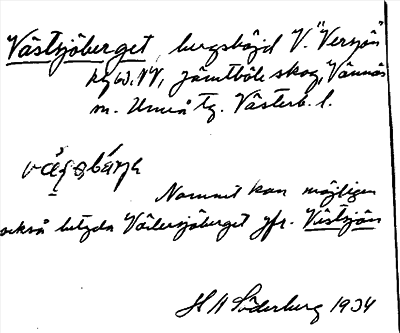 Västsjöberget, bergshöjd V. "Versjön"
NV, Jämtböle skog, Vännäs
m. Umeå tg. Västerb. l.
Namnet kan möjligen
också betyda Västersjöberget jfr. Västsjön
H A Söderberg 1934